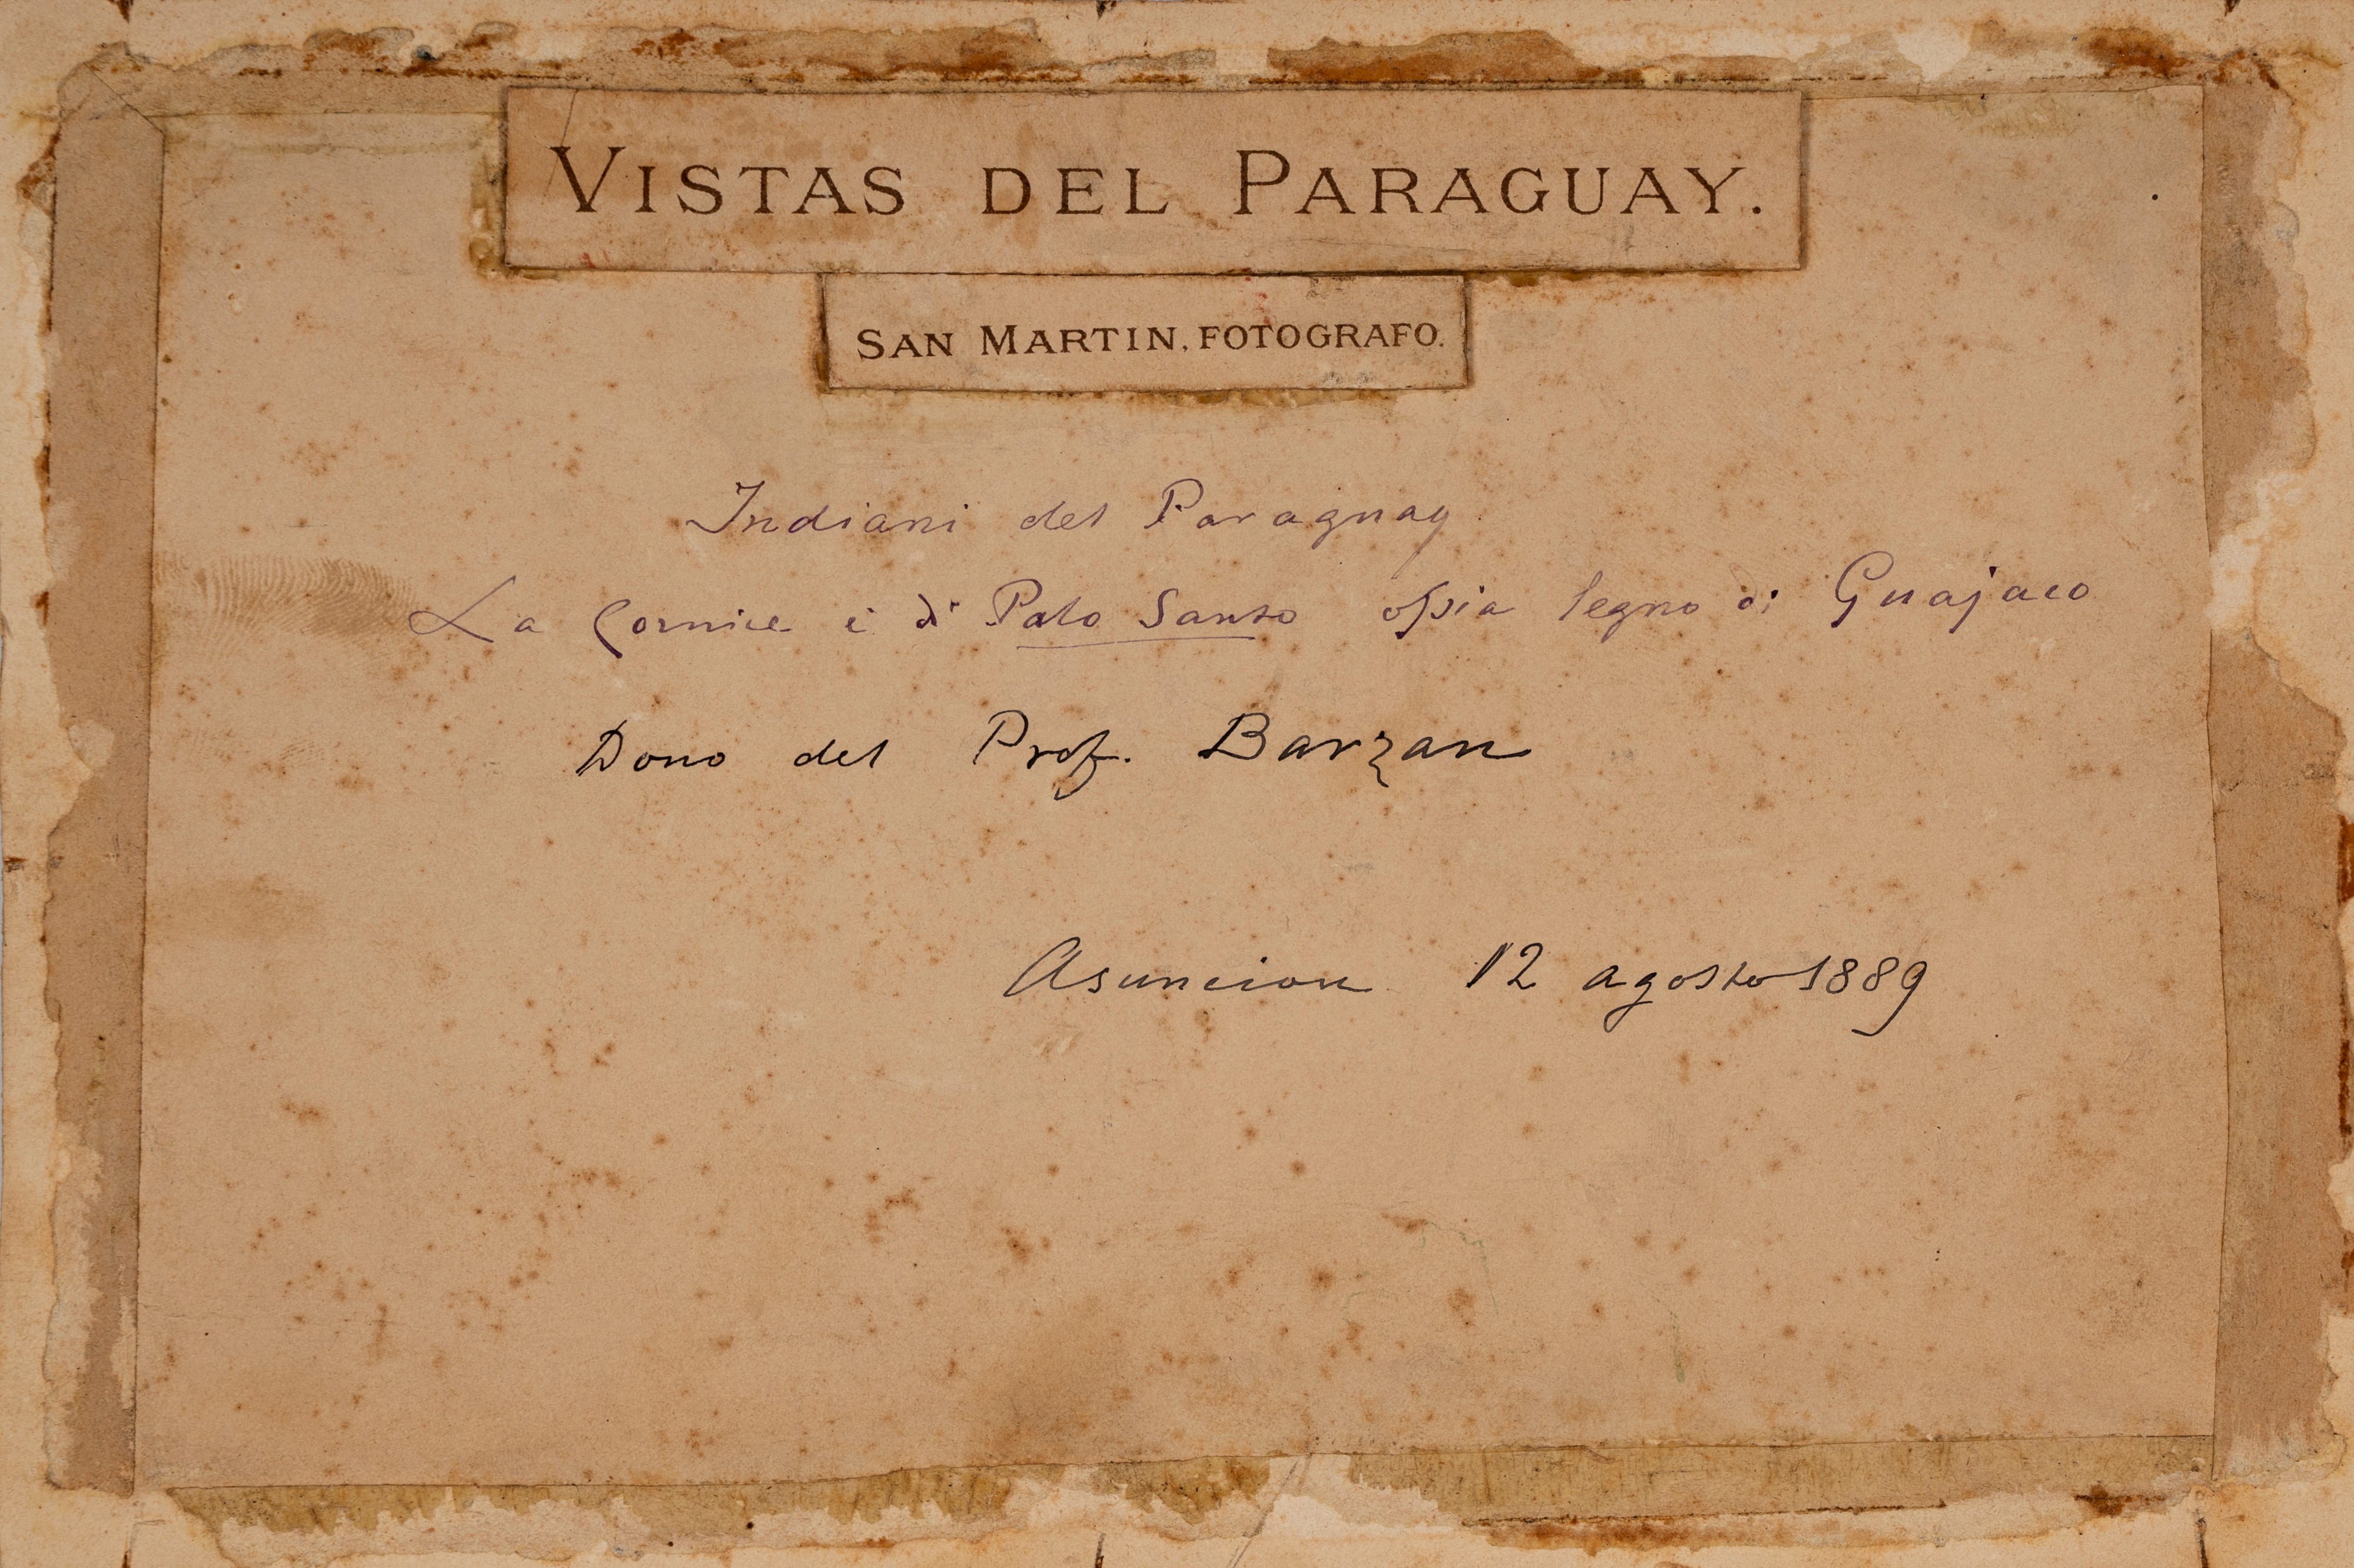 VISTAS DEL PARAGUAY.
SAN MARTIN, FOTOGRAFO.
Indiani del Paraguay
La Cornice è di Palo Santo ossia legno di Guajaco
Dono del Prof. Barzan
Asuncion 12 agosto 1889